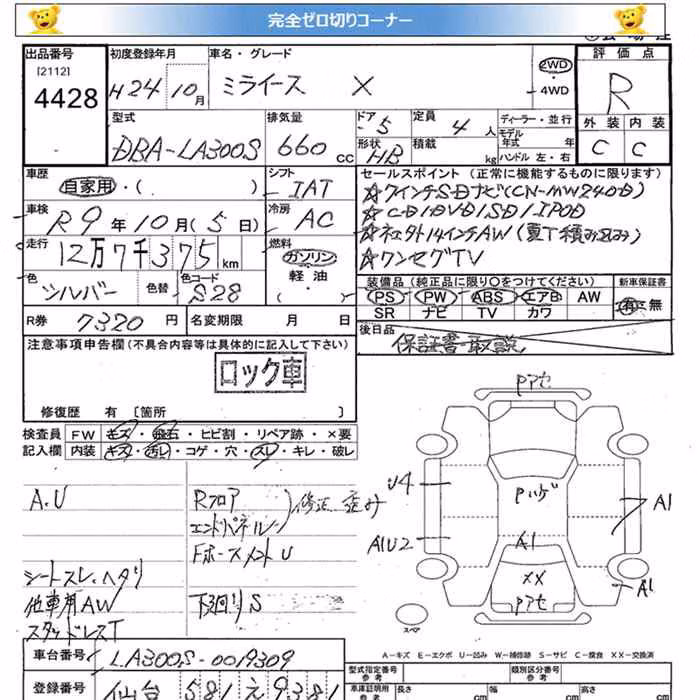 完全ゼロ切りコーナー
出品番号
[2112]
4428
初度登録年月
H24年10月
車名・グレード
ミライース X
2WD
4WD
評価点
R
外装 内装
C C
型式
DBA-LA300S
排気量
660 cc
ドア 5
形状 HB
定員 4 人
積載 kg
ディーラー・並行
モデル年式 年
ハンドル 左・右
車歴
自家用・( )
シフト
IAT
セールスポイント (正常に機能するものに限ります)
☆7インチSDナビ(CN-MW240D)
☆CD/DVD/SD/IPOD
☆社外14インチAW(夏T積み込み)
☆ワンセグTV
車検
R9年10月(5日)
冷房
AC
走行
12万7千375km
燃料
ガソリン
軽油
( )
色
シルバー
色替
色コード
S28
装備品 (純正品に限り〇をつけてください)
PS PW ABS エアB AW
SR ナビ TV カワ
新車保証書
有・無
R券 7320 円
名変期限 月 日
後日品
保証書 取説
注意事項申告欄(不具合内容等は具体的に記入して下さい)
ロック車
修復歴 有 [箇所 ]
検査員記入欄
FW キズ・飛石・ヒビ割・リペア跡・×要
内装 キズ・汚レ・コゲ・穴・スレ・キレ・破レ
A.U
Rフロア
エンドパネル
修正 歪み
Fホースメント U
シートスレ、ヘタリ
他車用AW
スタッドレスT
下回り S
Pアセ
U4
Pハゲ
A1
A1U2
A1
××
Pアセ
A1
スペア
A-キズ E-エクボ U-凹み W-補修跡 S-サビ C-腐食 XX-交換済
車台番号
LA300S-0019309
登録番号
仙台 581 え 9381
型式指定番号
類別区分番号
車庫証明用参考
長さ cm
幅 cm
高さ cm